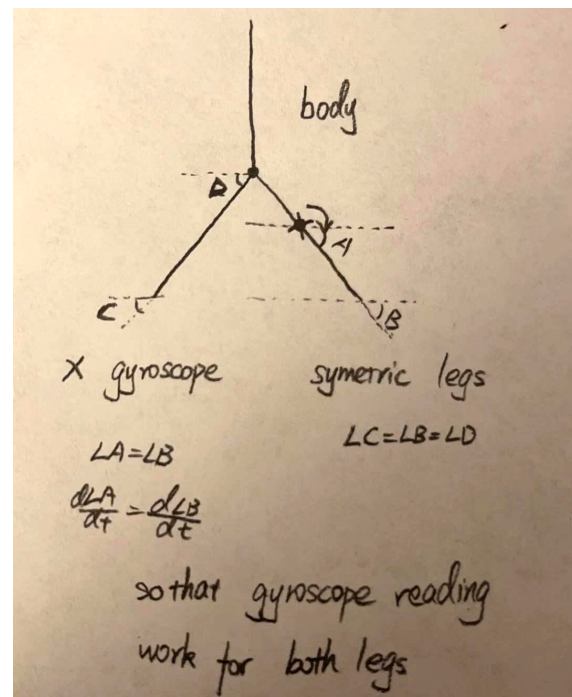 body
D
A
C
B
X gyroscope
symetric legs
∠A=∠B
∠C=∠B=∠D
d∠A/dt = d∠B/dt
so that gyroscope reading
work for both legs